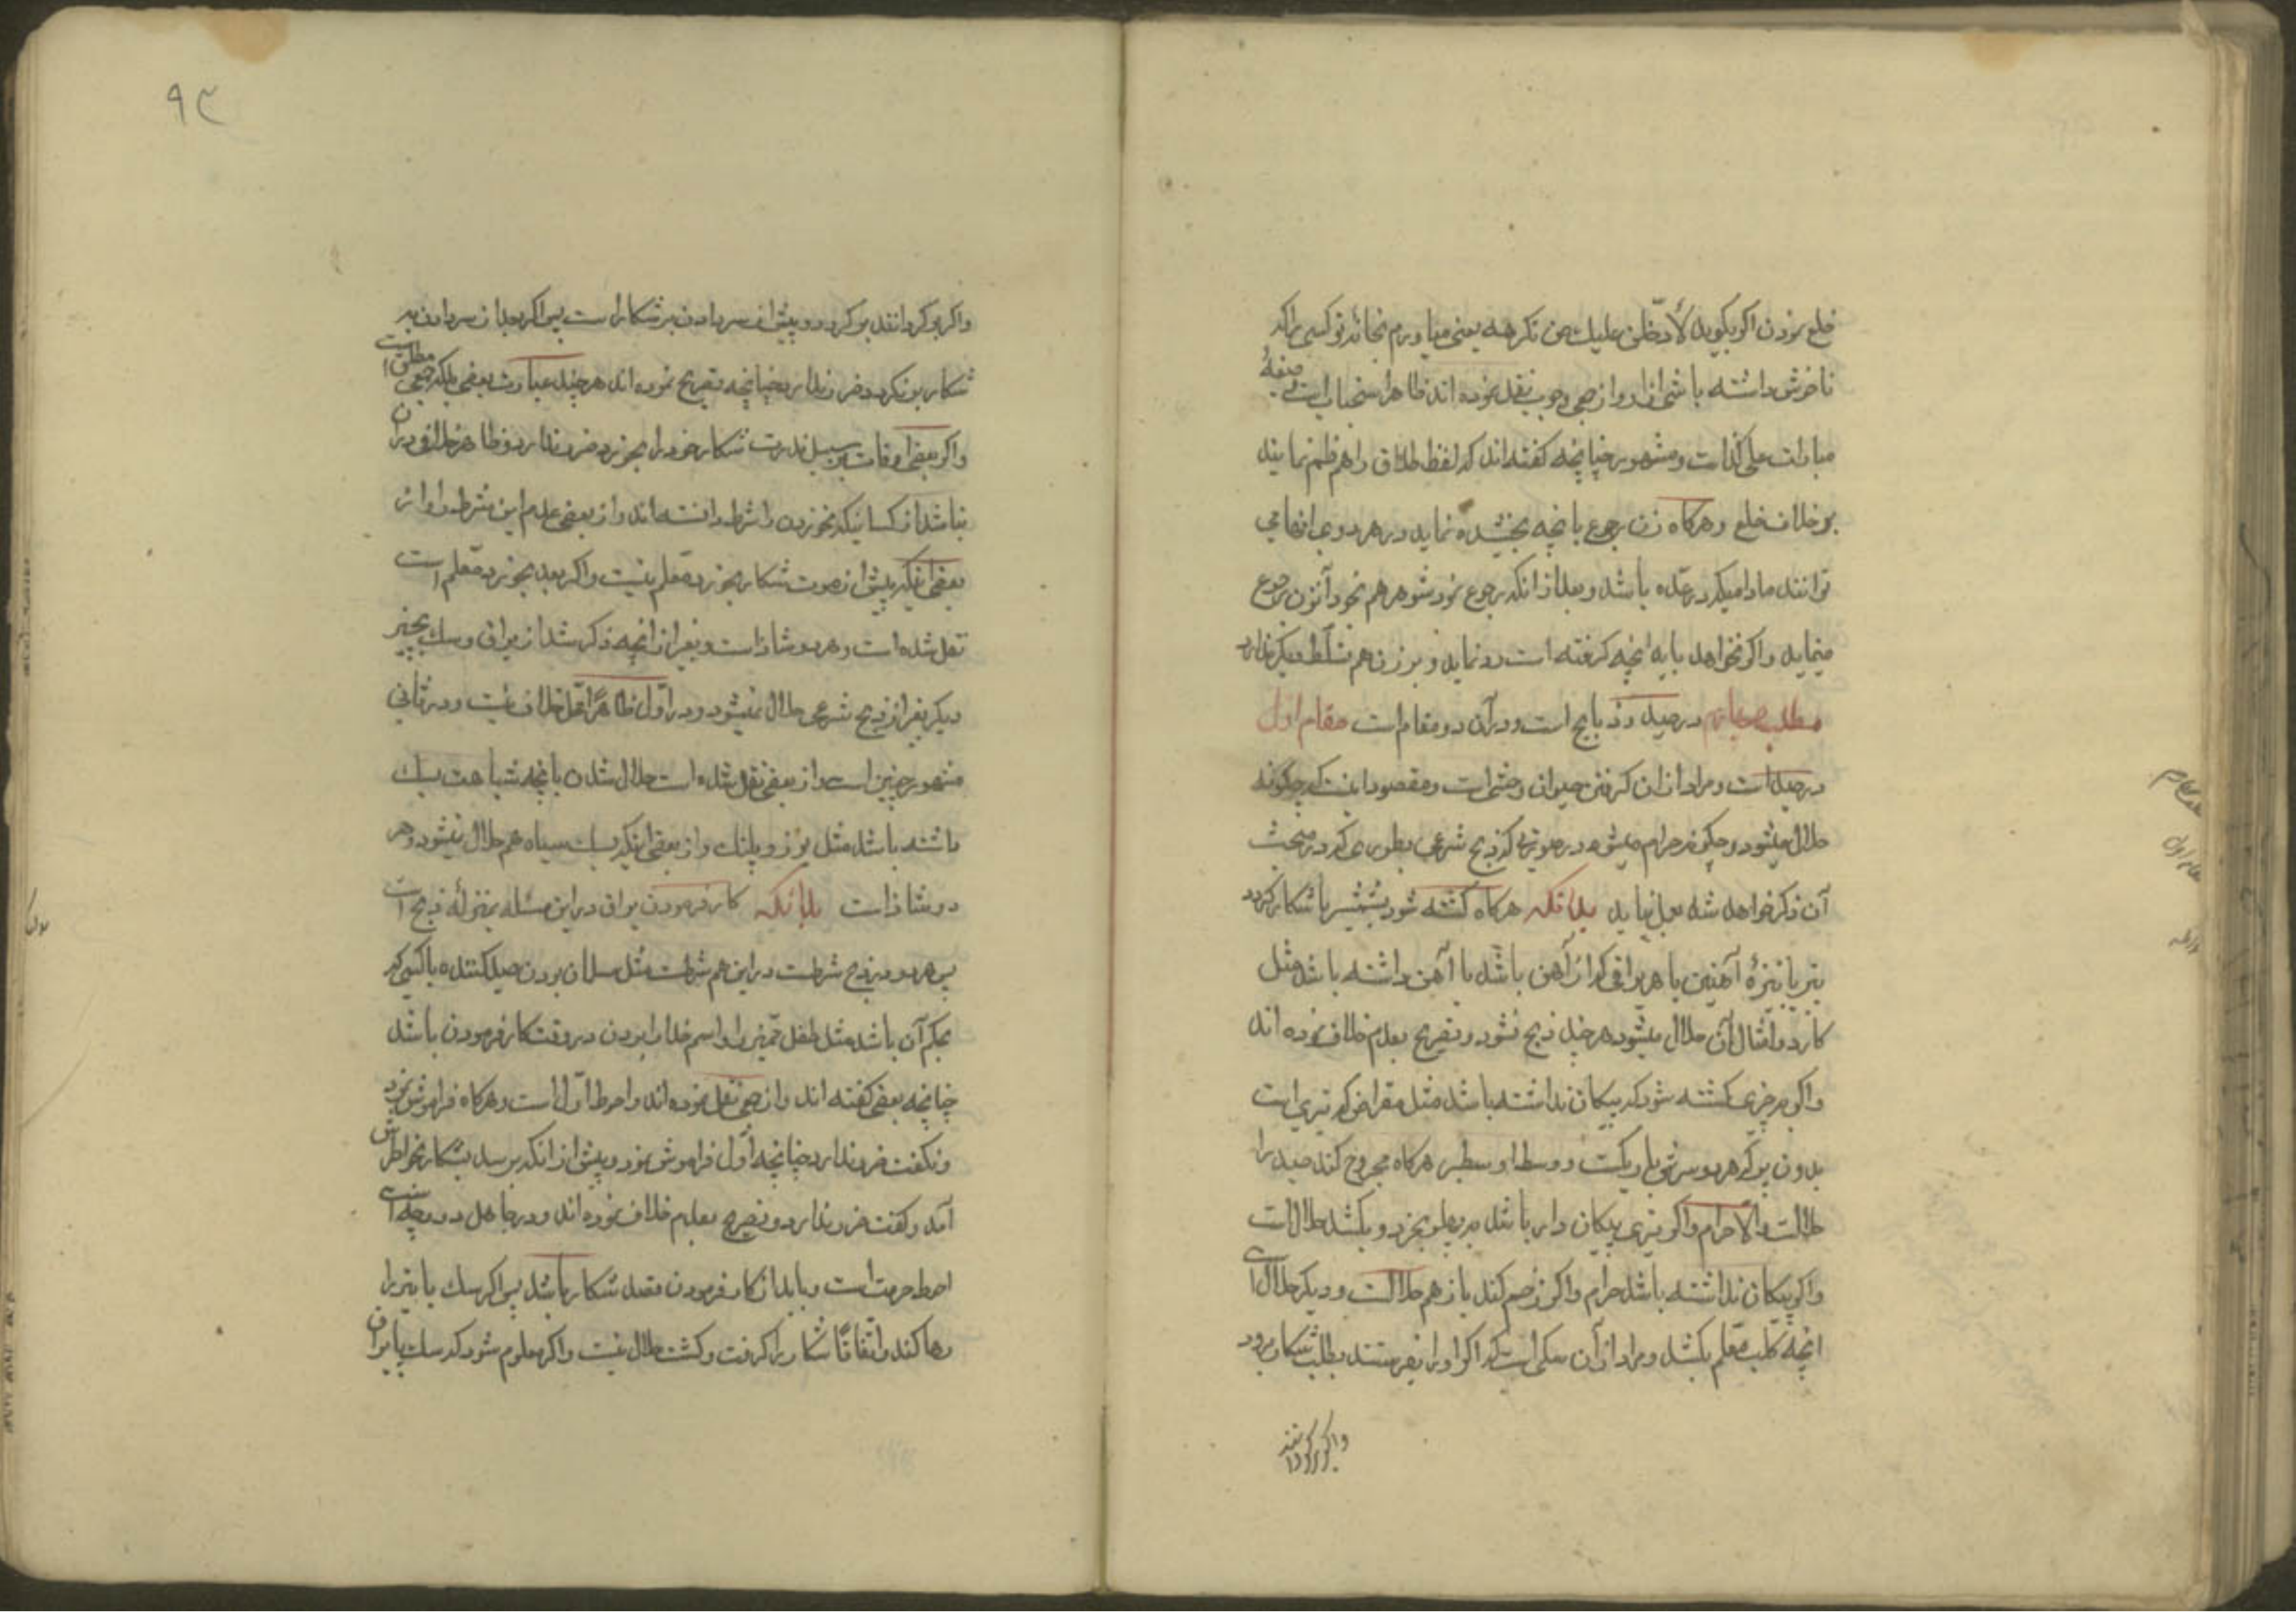 خلع نمودن اکر بکوید لأدخلن علیك من تکرهه یعنی میاورم بخانه تو کسی را که
ناخوش داشته باشی از او از جمعی وجوب نقل نموده اند ظاهر استحباب است وصیغهٔ
مبارات علی کذا است ومشهور چنانچه کفته اند که لفظ طلاق را هم ضم نمایند
بر خلاف خلع وهرکاه زن رجوع بانچه بخشیده نماید در هر دو جا انها می
توانند مادامیکه در عده باشد وبعد از انکه رجوع نمود شوهر هم بخود آنزن رجوع
مینماید واکر نخواهد باید انچه کرفته است رد نماید وبر زن هم تسلط دیکر ندارد
مطلب چهارم در صید وذبایح است ودر آن دو مقام است مقام اول
در صید است ومراد از ان کرفتن حیوان وحشی است ومقصود اینست که چکونه
حلال میشود وچکونه حرام میشود در صورتی که ذبح شرعی بطوری که در مبحث
آن ذکر خواهد شد بعمل نیاید بدانکه هرکاه کشته شود بشمشیر یا شکار کردد
بتیر یا نیزهٔ آهنین یا هر یراقی که از آهن باشد یا آهن داشته باشد مثل
کارد وامثال آن حلال میشود هر چند ذبح نشود وتصریح بعدم خلاف نموده اند
واکر بچیزی کشته شود که پیکان نداشته باشد مثل معراض که تیری است
بدون پر که هر دو سرش باریکست ووسط او سطبر هرکاه مجروح کند صید را
حلالست والا حرام واکر تیری پیکان دار باشد بر پهلو بخورد وبکشد حلال است
واکر پیکان نداشته باشد حرام واکر زخم کند باز هم حلالست ودیکر حلال است
انچه کلب معلم بکشد ومراد از آن سکی است که اکر او را بفرستند بطلب شکار برود
واکر برکردانند
٩٣
واکر برکردانند برکردد وپیش از سر دادن بر شکار است پس اکر بعد از سر دادن بر
شکار بر نکردد ضرر ندارد چنانچه تصریح نموده اند هر چند عبارت بعضی بلکه جمعی مطلق است
واکر بعضی اوقات بر سبیل ندرت شکار خود را بخورد ضرر ندارد وظاهر خلافی در ان
نباشد از کسانیکه نخوردن را شرط دانسته اند واز بعضی عدم این شرط واز
بعضی اینکه پیش از موت شکار بخورد معلم نیست واکر بعد بخورد معلم است
نقل شده است وهر دو شاذ است وبغیر از انچه ذکر شد از یراق وسك بچیز
دیکر بغیر از ذبح شرعی حلال نمیشود ودر اول ظاهراً محل خلاف نیست ودر ثانی
مشهور چنین است واز بعضی نقل شده است حلال شدن بانچه شباهت بسك
داشته باشد مثل یوز وپلنك واز بعضی اینکه بسك سیاه هم حلال نمیشود وهر
دو شاذ است بدانکه کار فرمودن یراق در این مسئله بمنزلهٔ ذبح است
پس هر چه در ذبح شرطست در این هم شرطست مثل مسلمان بودن صید کننده یا کسی که
بحکم آن باشد مثل طفل ممیز او واسم خدا را بردن در وقت کار فرمودن باشد
چنانچه بعضی کفته اند واز جمعی نقل نموده اند واحوط اول است وهرکاه فراموش نمود
ونکفت ضرر ندارد چنانچه اول فراموش نمود وپیش از انکه برسد بشکار بخاطرش
آمد وکفت ضرر ندارد وتصریح بعدم خلاف نموده اند ودر جاهل دو وجه است
احوط حرمت است وباید از کار فرمودن مقصد شکار باشد پس اکر سك یا تیر را
رها کند واتفاقاً شکار را کرفت وکشت حلال نیست واکر معلوم شود که سك یا یراق